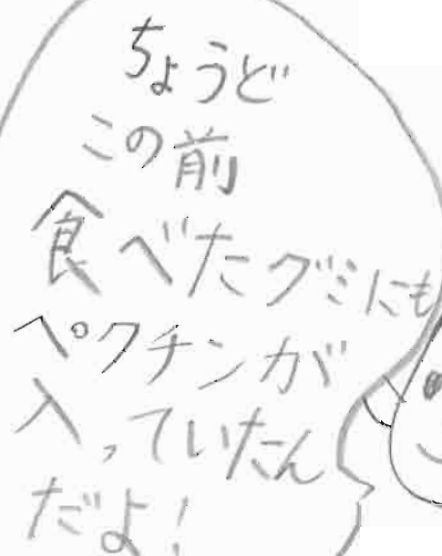 ちょうど
この前
食べたグミにも
ペクチンが
入っていたん
だよ!